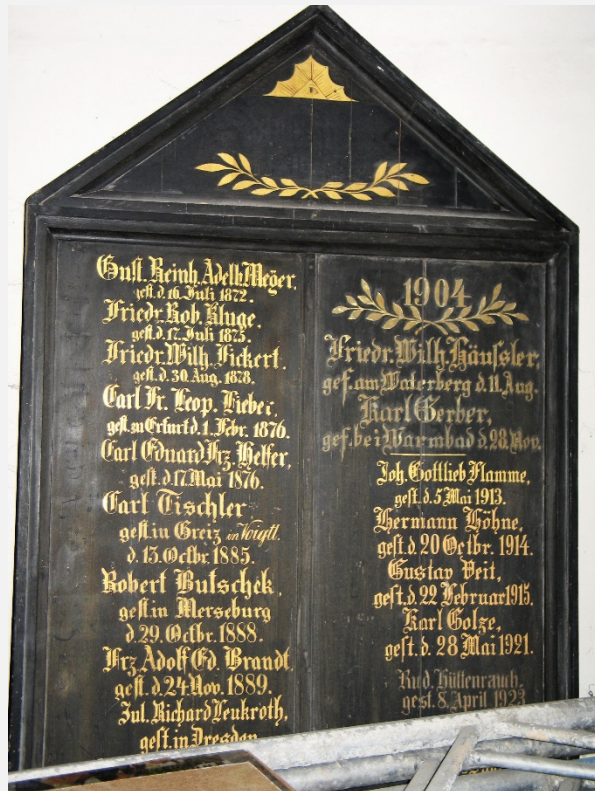 Gust. Reinh. Adelb. Meyer,
gest. d. 16. Juli 1872.
Friedr. Rob. Kluge,
gest. d. 17. Juli 1875.
Friedr. Wilh. Fickert.
gest. d. 30. Aug. 1878.
Carl Fr. Leop. Lieber,
gest. zu Erfurt d. 1. Febr. 1876.
Carl Eduard Frz. Helfer,
gest. d. 17. Mai 1876.
Carl Tischler
gest. in Greiz in Voigtl.
d. 13. Octbr. 1885.
Robert Butscheck,
gest in Merseburg
d. 29. Octbr. 1888.
Frz. Adolf Ed. Brandt,
gest. d. 24. Nov. 1889.
Jul. Richard Leukroth,
gest. in Dresden
1904
Friedr. Wilh. Häußler,
gef. am Waterberg d. 11. Aug.
Karl Gerber,
gef. bei Warmbad d. 28. Nov.
Joh. Gottlieb Flamme,
gest. d. 5 Mai 1913.
Hermann Höhne,
gest. d. 20 Octbr. 1914.
Gustav Veit,
gest. d. 22 Februar 1915.
Karl Golze,
gest. d. 28 Mai 1921.
Rud. Hüttenrauch,
gest. 8. April 1923